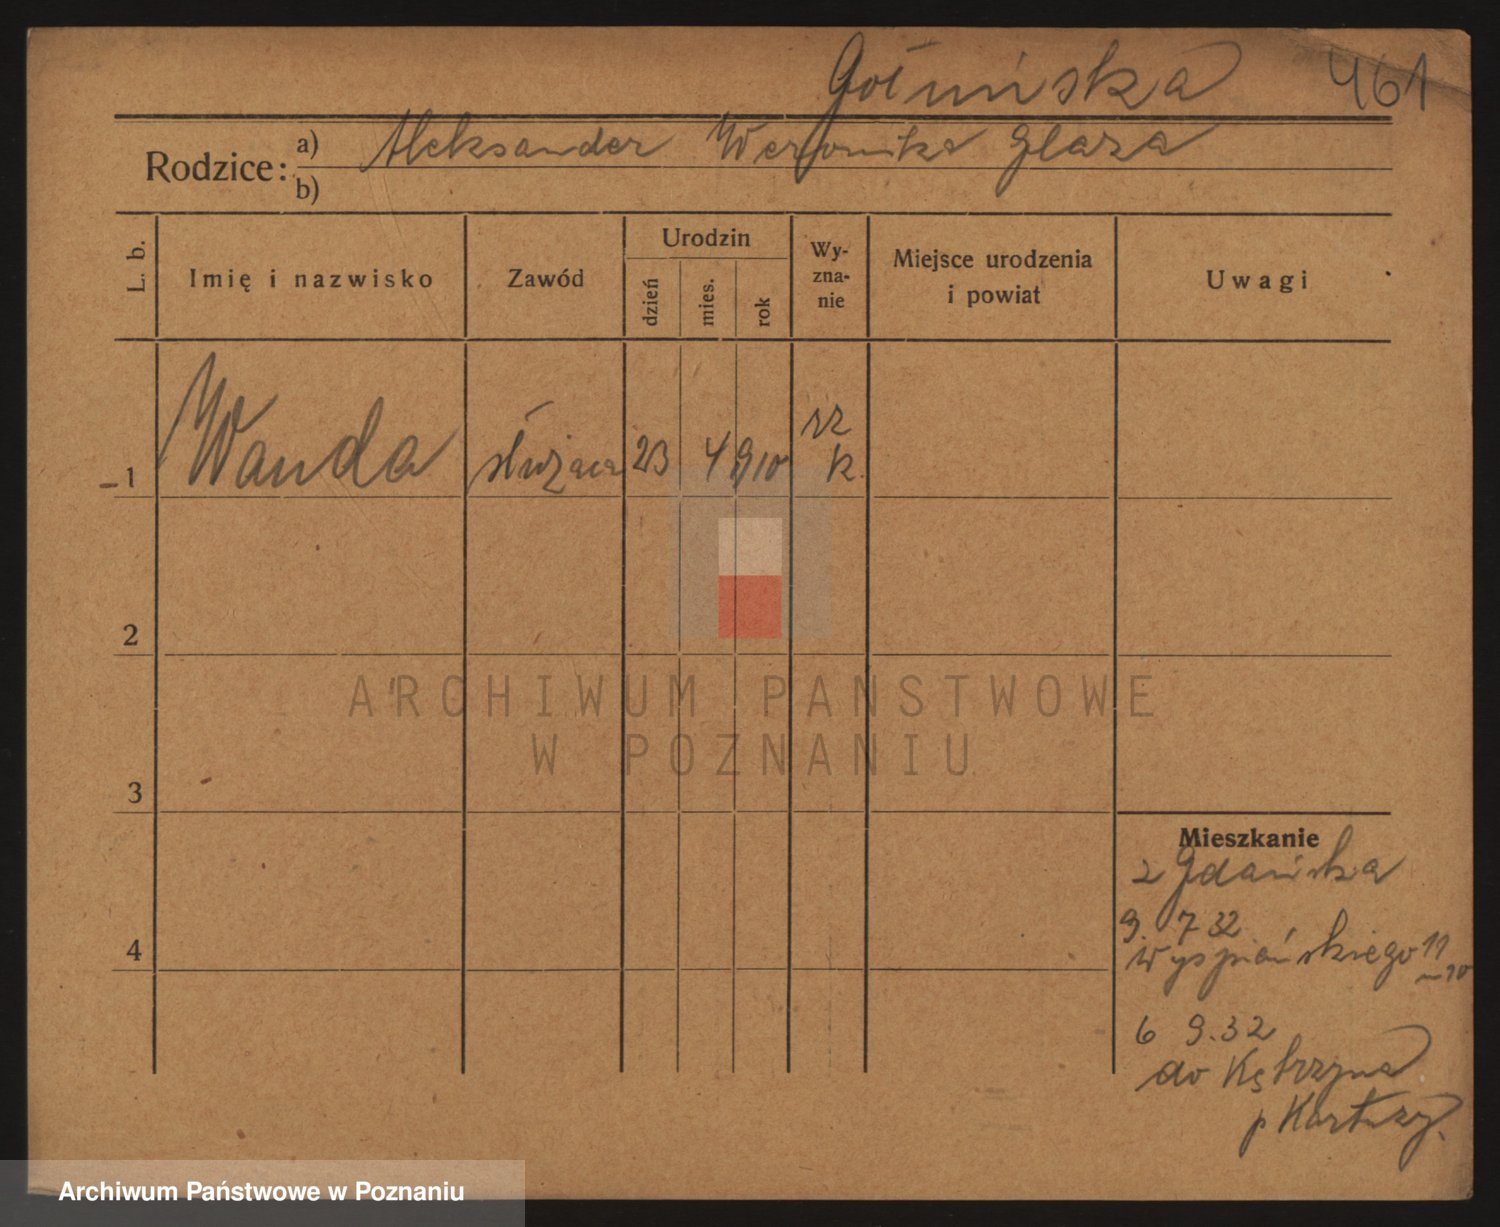 Gołuńska 461
Rodzice: a) Aleksander Weronika Glaza
b)
L. b. Imię i nazwisko Zawód Urodzin dzień mies. rok Wy-zna-nie Miejsce urodzenia i powiat Uwagi
1 Wanda służąca 23 4 910 rz k.
2
3
4
ARCHIWUM PAŃSTWOWE
W POZNANIU
Mieszkanie
z Gdańska
9. 7 32
Wyspiańskiego 11
–10
6 9.32
do Kętrzyna
p Kartuzy.
Archiwum Państwowe w Poznaniu